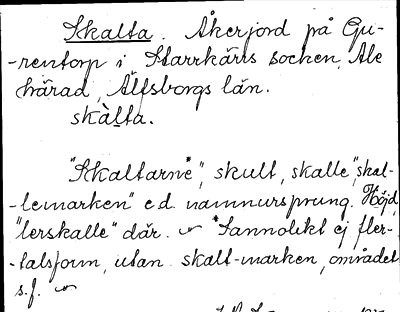 Skalta. Åkerjord på Gu-
-rentorp i Starrkärrs socken, Ale
härad, Älfsborgs län.
skàlta.
"Skaltarne*", skult, skalle, "skal-
-lemarken" e.d. namnursprung. Höjd,
"lerskalle" där. ~ *Sannolikt ej fler-
-talsform, utan skalt-marken, området
s.f. ~